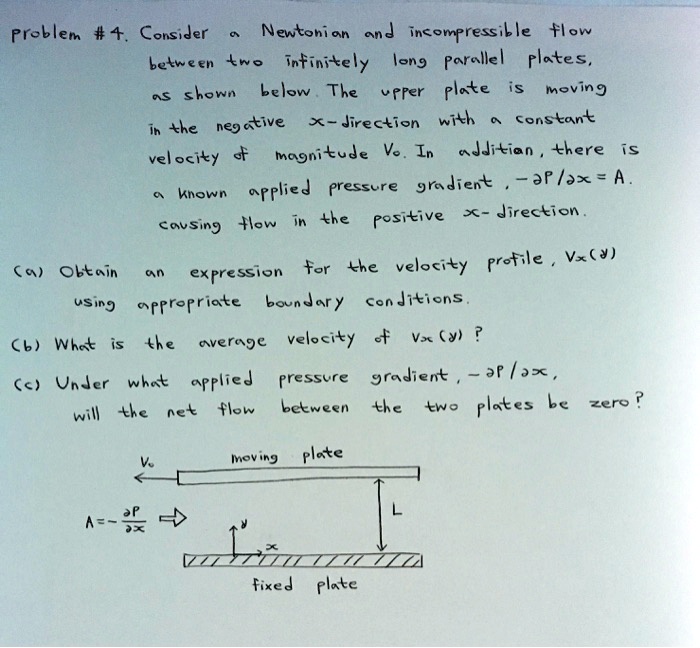 Problem #4. Consider a Newtonian and incompressible flow
between two infinitely long parallel plates,
as shown below. The upper plate is moving
in the negative x-direction with a constant
velocity of magnitude V₀. In addition, there is
a known applied pressure gradient, -∂P/∂x = A.
causing flow in the positive x-direction.
(a) Obtain an expression for the velocity profile, Vx(y)
using appropriate boundary conditions.
(b) What is the average velocity of Vx(y)?
(c) Under what applied pressure gradient, -∂P/∂x,
will the net flow between the two plates be zero?
V₀ moving plate
A=-∂P/∂x
L
y
x
fixed plate